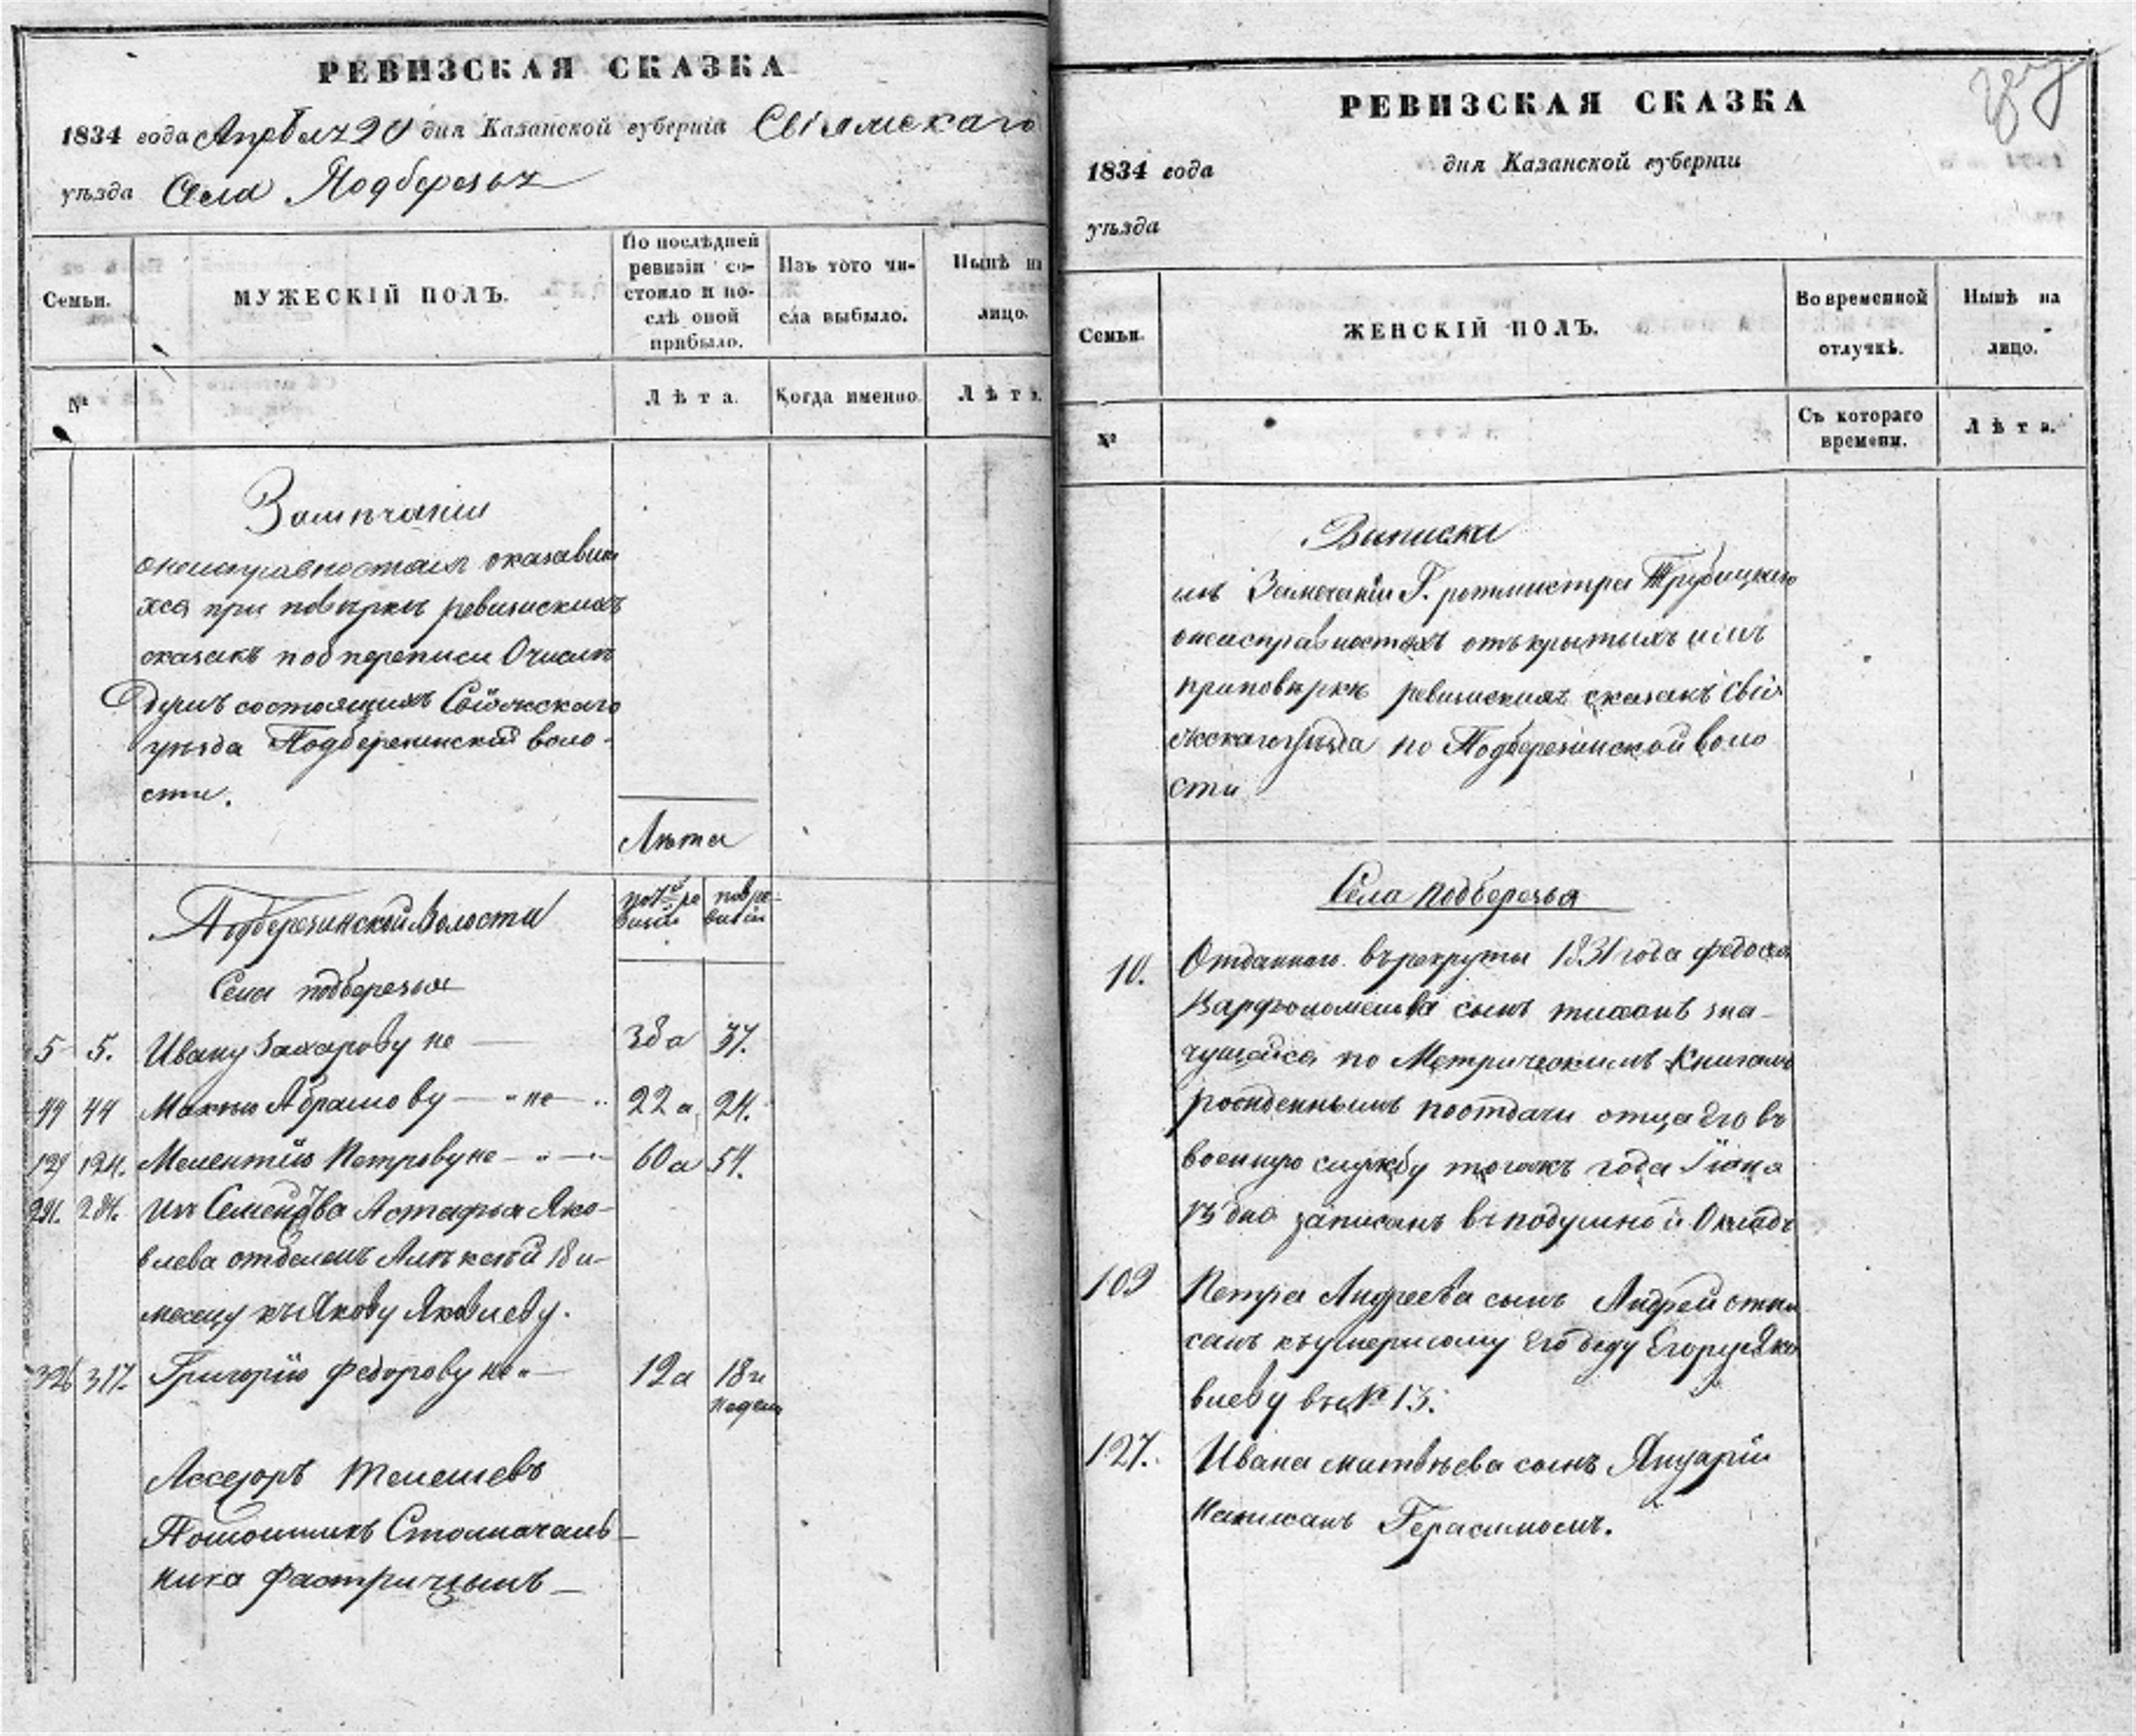 РЕВИЗСКАЯ СКАЗКА
1834 года Апреля 20 дня Казанской губерніи Свіяжскаго
уѣзда Села Подберезья
Семьи.
МУЖЕСКІЙ ПОЛЪ.
По послѣдней
ревизіи со-
стояло и по-
слѣ оной
прибыло.
Изъ того чи-
сла выбыло.
Нынѣ на
лицо.
№
Лѣта.
Когда именно.
Лѣта.
Замѣчаніи
онеисправностяхъ оказавши
хся при повѣркѣ ревизскихъ
сказакъ 
душъ состоящихъ Свіяжскаго
уѣзда Подберезинской воло-
сти.
Лѣта
по 7й ре
визіи
по 8 ре-
визіи
Подберезинской Волости
Села подберезья
5 5. Ивану Захарову не — 38 а 37.
44 44 Абрамову — " не — " 22 а 24.
124 124. Мелентію Петрову не — " — 60 а 54.
Астафья Яко-
влева 18 и
месецу къ Якову Яковлеву.
326 317. Григорію Федорову не " — 12 а 18 и
недель
Ассесоръ Телешевъ
Помошникъ Столначаль-
ника
РЕВИЗСКАЯ СКАЗКА
1834 года дня Казанской губерніи
уѣзда
Семьи.
ЖЕНСКІЙ ПОЛЪ.
Во временной
отлучкѣ.
Нынѣ на
лицо.
№
Съ котораго
времени.
Лѣта.
Выписка
изъ Замечаніи Г. ротмистра Трубицкаго
онеисправностяхъ открытыхъ имъ
приповѣркѣ ревизскихъ сказакъ Свія
жскаго уѣзда по Подберезинской воло
сти
Села подберезья
10. Отданнаго въ рекруты 1831 года федосея
Варфоломеева сынъ тихонъ зна-
чущейся по Метрическимъ Книгамъ
рожденнымъ поотдачи отца его въ
военную службу тогожъ года Іюня
13 дня записанъ въ подушной Окладъ
109 Петра Андреева сынъ Андрей
санъ къ умершому его деду Егору Яко
влеву въ № 13.
127. Ивана матвѣева сынъ Януарій
написанъ Герасимомъ.